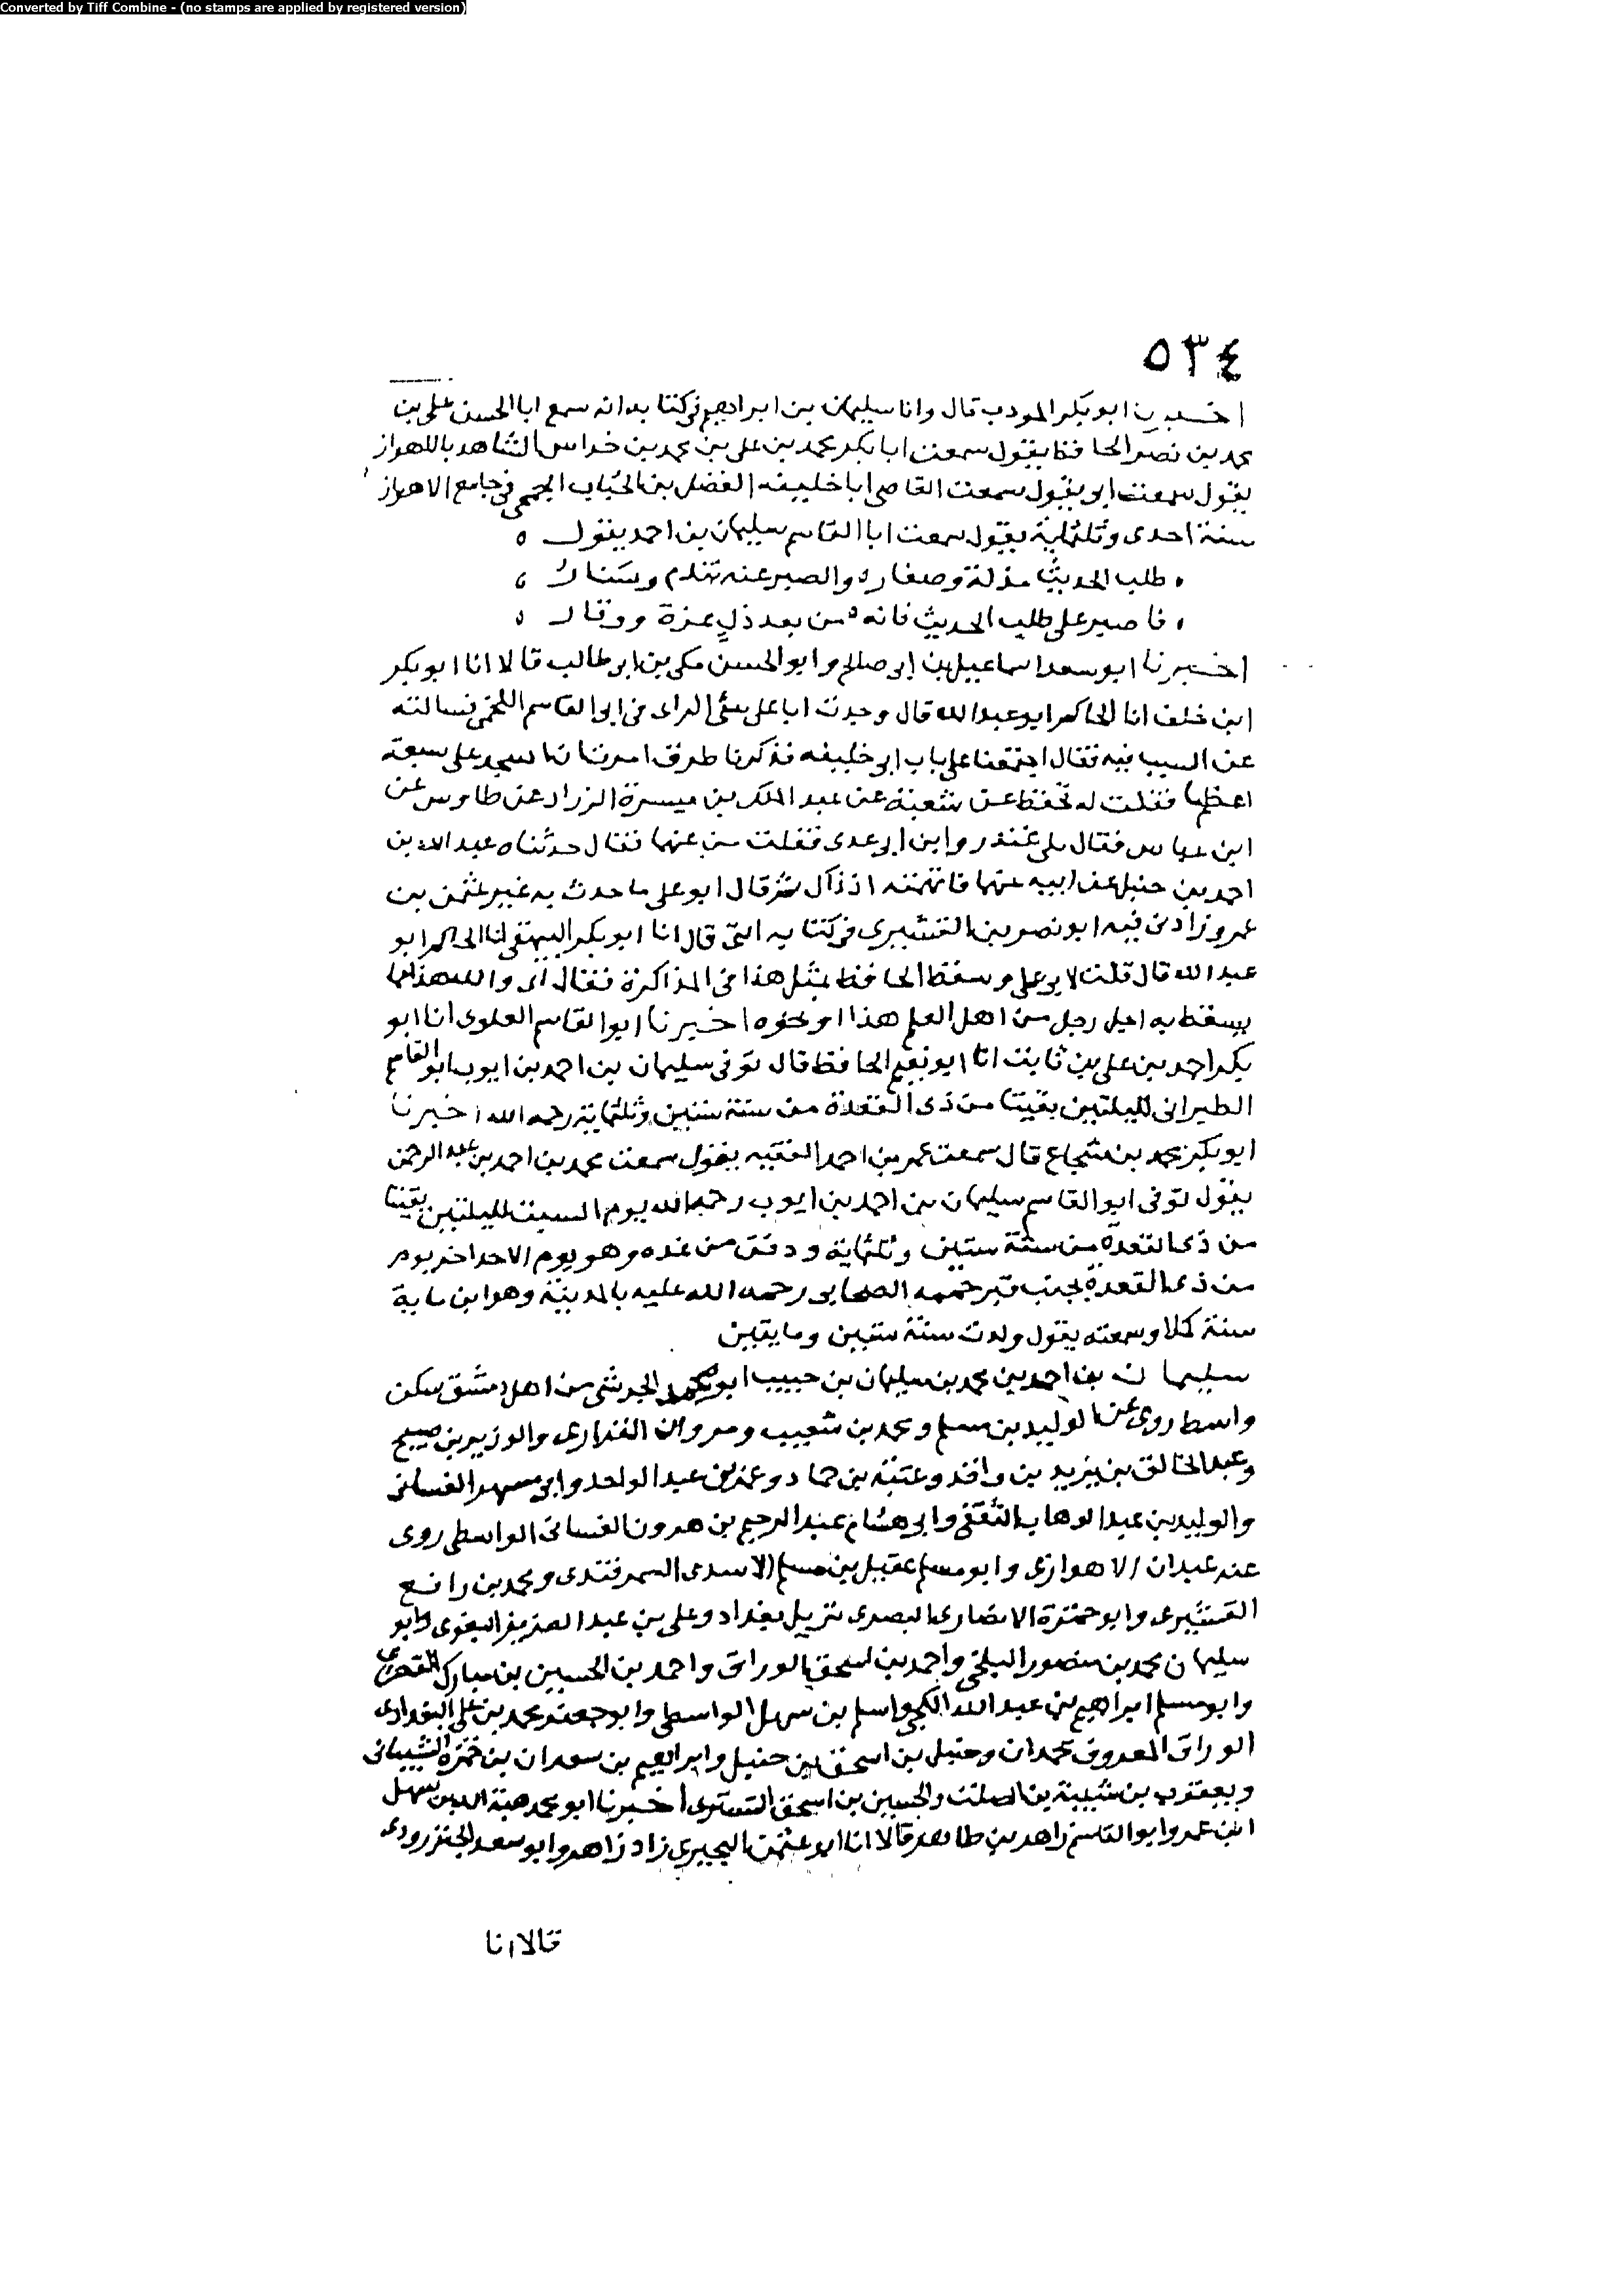 Converted by Tiff Combine - (no stamps are applied by registered version)
٥٣٤
اخبرنا ابو بكر المودب قال وانا سليمان بن ابراهيم في كتابه انه سمع ابا الحسن علي بن
محمد بن نصر الحافظ يقول سمعت ابا بكر محمد بن علي بن محمد بن خداس الشاهد بالاهواز
يقول سمعت ابي يقول سمعت القاضي ابا خليفه الفضل بن الحباب الجمحي في جامع الاهواز
سنة احدى وثلثماية يقول سمعت ابا القاسم سليمان بن احمد يقول
طلب الحديث مذلة وصغار والصبر عنه تندم وشنار
فاصبر على طلب الحديث فانه من بعد ذل عزة ووقار
اخبرنا ابو سعد اسماعيل بن ابي صالح وابو الحسن مكي بن ابي طالب قالا انا ابو بكر
ابن خلف انا الحاكم ابو عبد الله قال وجدت ابا علي سئ الراى في ابي القاسم اللخمي فسالته
عن السبب فيه فقال اجتمعنا على باب ابي خليفه فذكرنا طرق امرنا ان اسجد على سبعة
اعظم فقلت له تحفظ عن شعبة عن عبد الملك بن ميسرة الزراد عن طاوس عن
ابن عباس فقال بلى غندر وابن ابي عدي فقلت من عنهما فقال حدثناه عبد الله بن
احمد بن حنبل عن ابيه عنهما فاتهمته اذ ذاك ثم قال ابو علي ما حدث به غير عثمن بن
عمر وزادني فيه ابو نصر بن القشيري في كتابه التي قال انا ابو بكر البيهقي انا الحاكم ابو
عبد الله قال قلت لابي علي وسقط الحافظ بمثل هذا في المذاكرة فقال اى والله هذا مما
يسقط به اجل رجل من اهل العلم هذا او نحوه اخبرنا ابو القاسم العلوي انا ابو
بكر احمد بن علي بن ثابت انا ابو نعيم الحافظ قال توفي سليمان بن احمد بن ايوب ابو القاسم
الطبراني لليلتين بقيتا من ذى القعدة من سنة ستين وثلثماية رحمه الله اخبرنا
ابو بكر محمد بن شجاع قال سمعت عمر بن احمد الفقيه يقول سمعت محمد بن احمد بن عبد الرحمن
يقول توفي ابو القاسم سليمان بن احمد بن ايوب رحمه الله يوم السبت لليلتين بقيتا
من ذى القعدة من سنة ستين وثلثماية ودفن من غده وهو يوم الاحد اخر يوم
من ذى القعدة بجنب قبر حممه الصحابي رحمه الله عليه بالمدينة وهو ابن ماية
سنة كملا وسمعته يقول ولدت سنة ستين ومايتين
سليمان بن احمد بن محمد بن سليمان بن حبيب ابو محمد الجرشي من اهل دمشق سكن
واسط روى عن الوليد بن مسلم ومحمد بن شعيب ومروان الفزارى والوزير بن صبيح
وعبد الخالق بن يزيد بن واقد وعتبة بن حماد وعمر بن عبد الواحد وابي مسهر الغساني
والوليد بن عبد الوهاب الثقفي وابي هشام عبد الرحيم بن هرون الغساني الواسطي روى
عنه عبدان الاهوازي وابو مسلم عقيل بن مسلم الاسدي السمرقندى ومحمد بن رافع
القشيرى وابو حمزة الانصارى البصرى نزيل بغداد وعلي بن عبد العزيز البغوى وابو
سليمان محمد بن منصور البلخي واحمد بن اسحق الوراق واحمد بن الحسين بن مبارك القصرى
وابو مسلم ابراهيم بن عبد الله الكجي واسلم بن سهل الواسطي وابو جعفر محمد بن علي البغدادى
الوراق المعروف بحمدان وحنبل بن اسحق بن حنبل وابراهيم بن سعدان بن حمزة الشيباني
ويعقوب بن شيبة بن الصلت والحسين بن اسحق التسترى اخبرنا ابو محمد هبة الله بن سهل
ابن عمر وابو القاسم زاهر بن طاهر قالا انا ابو عثمن البحيري زاد زاهر وابو سعد الجنزرودى
قالا انا